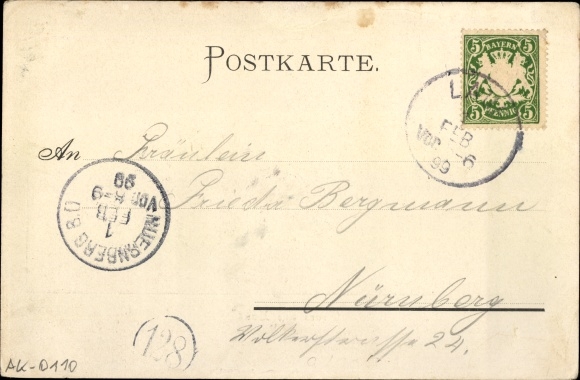 POSTKARTE.
5 BAYERN 5
5 PFENNIG 5
FEB
Vor
99
An Fräulein
Frieda Bergmann
NUERNBERG 8.
1
FEB
Vor 8-9
99
Nürnberg
Völkerstrasse 24.
128
AK-D110